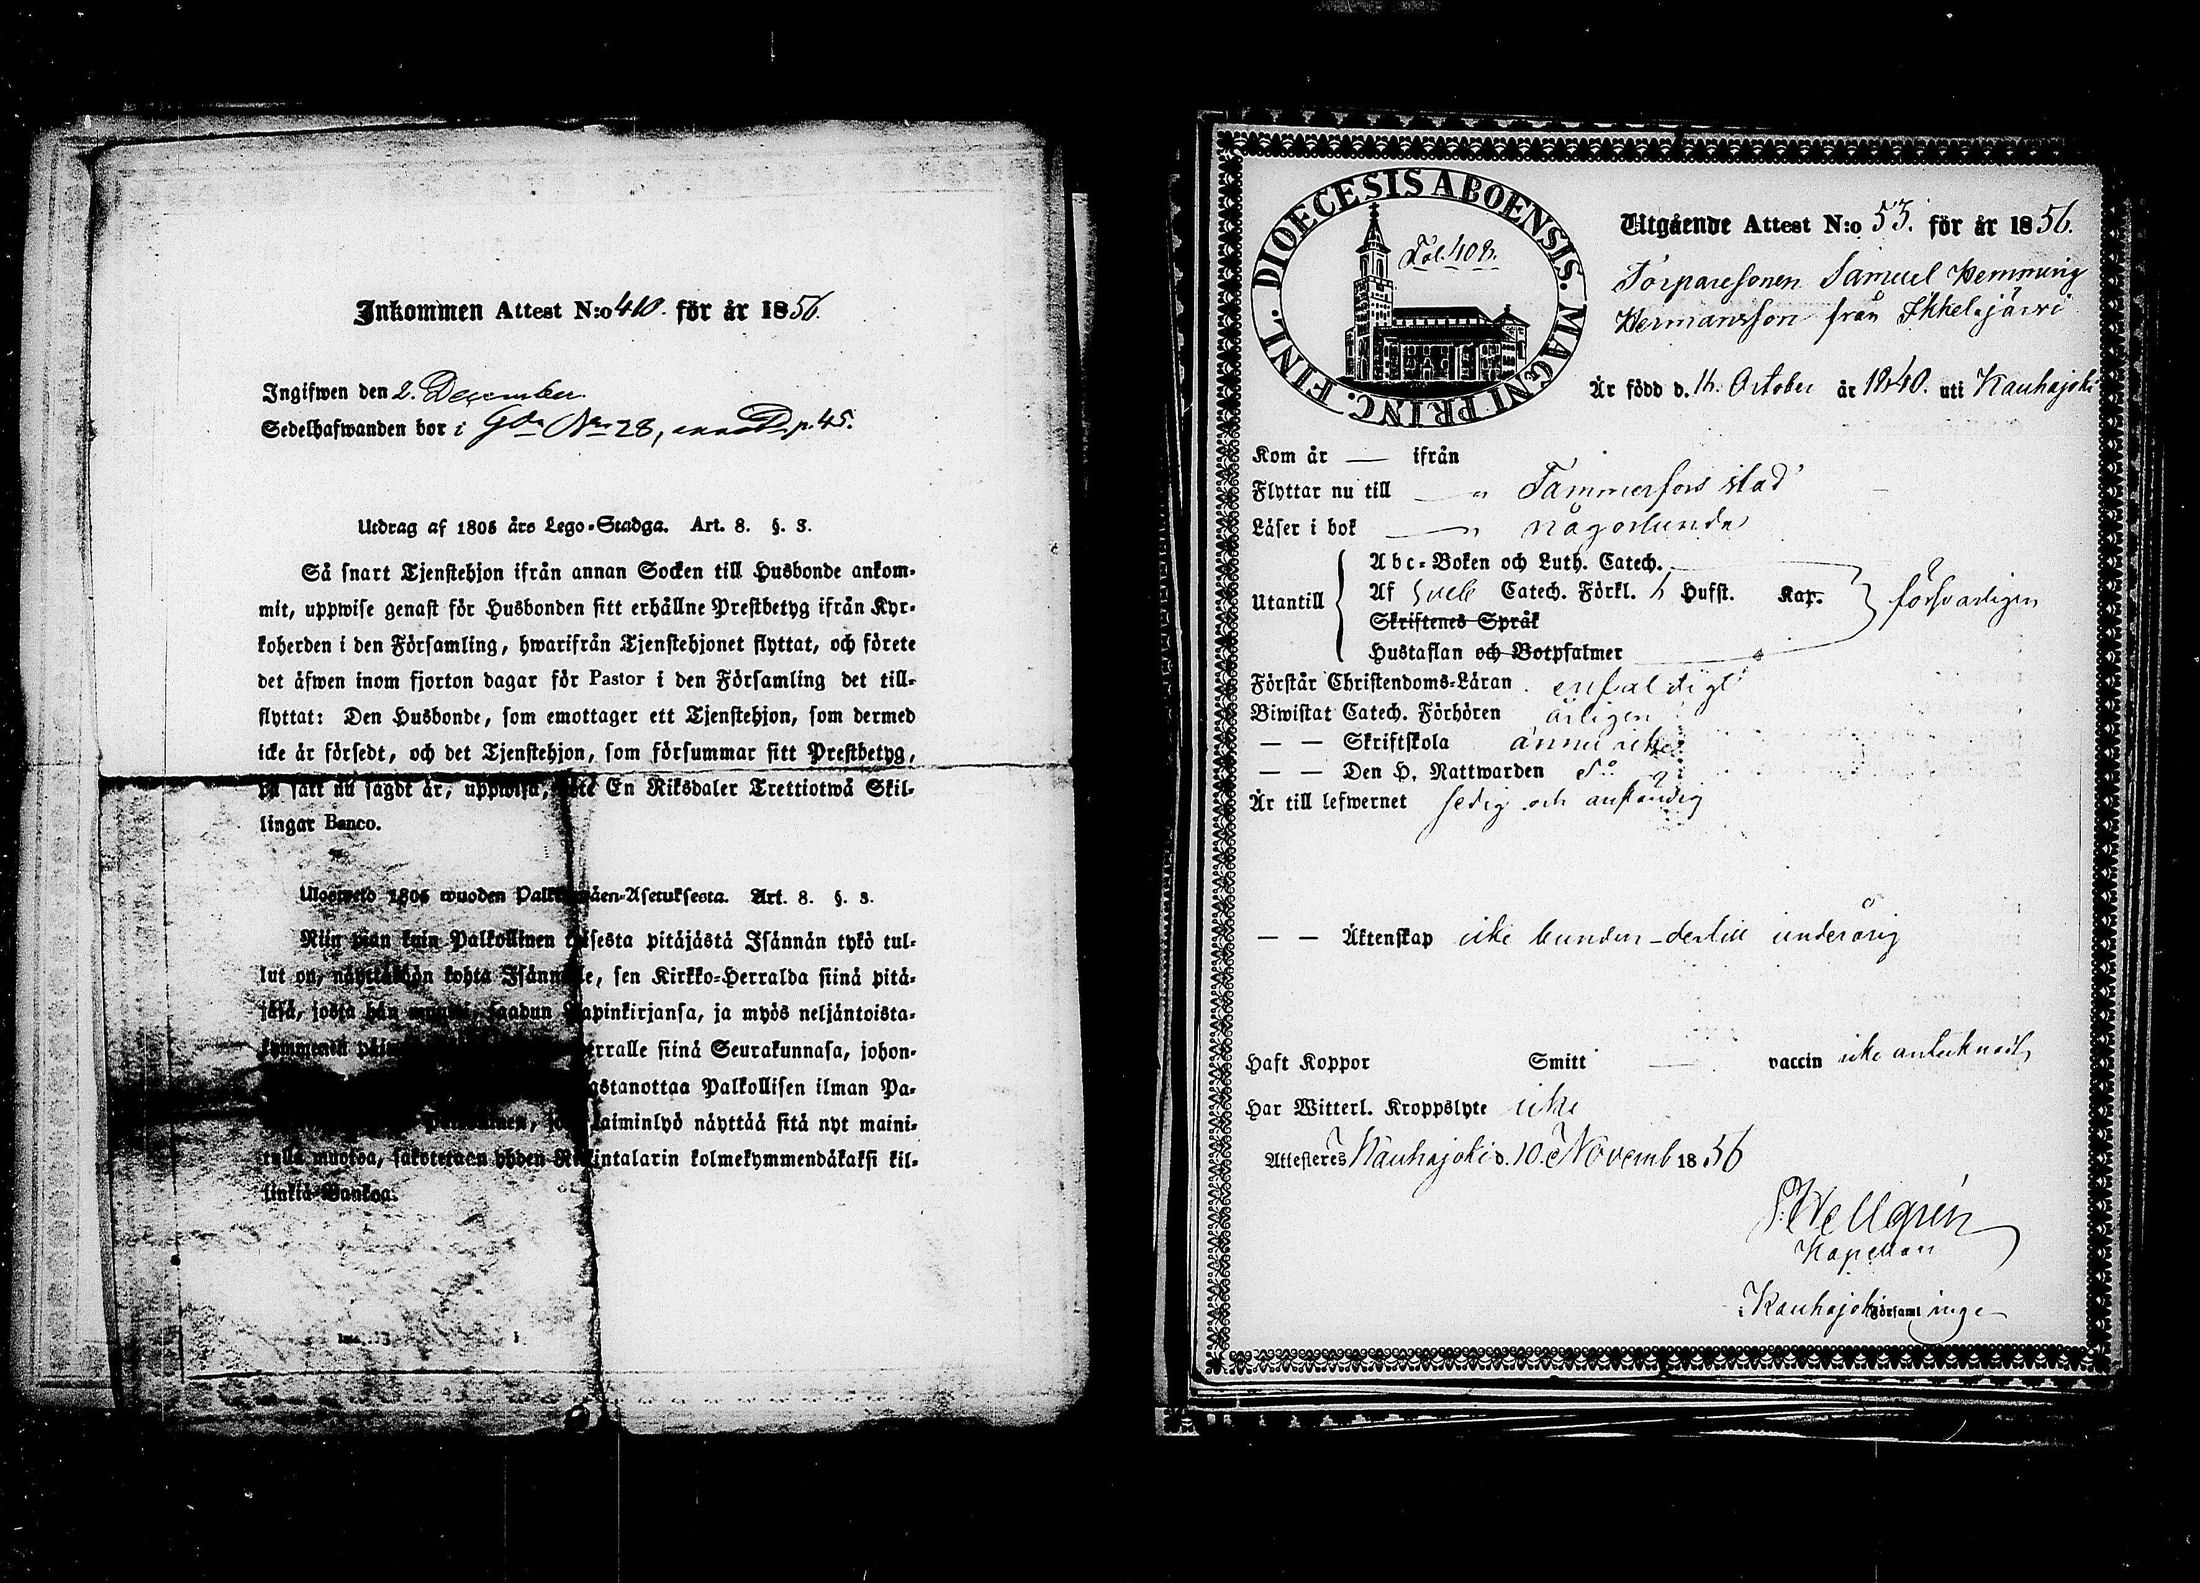 Inkommen Attest N:o 410. för år 1856.
Ingifwen den 2. December.
Sedelhafwanden bor i Gdn Nro 28, p. 45.
Utdrag af 1805 års Lego-Stadga. Art. 8. §. 3.
Så snart Tjenstehjon ifrån annan Socken till Husbonde ankom-
mit, uppwise genast för Husbonden sitt erhållne Prestbetyg ifrån Kyr-
koherden i den Församling, hwarifrån Tjenstehjonet flyttat, och förete
det äfwen inom fjorton dagar för Pastor i den Församling det till-
flyttat: Den Husbonde, som emottager ett Tjenstehjon, som dermed
icke är försedt, och det Tjenstehjon, som försummar sitt Prestbetyg,
på sätt nu sagdt är, uppwisa, böte En Riksdaler Trettiotwå Skil-
lingar Banco.
Ulosweto 1805 wuoden Palkkawäen-Asetuksesta. Art. 8. §. 3.
Niin pian kuin Palkollinen toisesta pitäjästä Isännän tykö tul-
lut on, näyttäköön kohta Isännälle, sen Kirkko-Herralda siinä pitä-
jäsä, josta hän muutti, saadun Papinkirjansa, ja myös neljäntoista-
kymmenen päiwän Herralle siinä Seurakunnasa, johon-
wastanottaa Palkollisen ilman Pa-
Palkollinen, joka laiminlyö näyttää sitä nyt maini-
tulla muotoa, sakotetaan yhden Riikintalarin kolmekymmendäkaksi kil-
linkiä Bankoa.
DIOECESIS ABOENSIS. MAGNI PRINC. FINL.
Fol. 408.
Utgående Attest N:o 53. för år 1856.
Torparesonen Samuel Hemming
Hermansson från Ikkeläjärvi
Är född d. 16. October år 1840. uti Kauhajoki
Kom år — ifrån
Flyttar nu till — " Tammerfors stad
Läser i bok — " någorlunda
Utantill
Abc-Boken och Luth. Catech.
Af Sveb Catech. Förkl. h Hufst. Kap.
Skriftenes Språk
Hustaflan och Botpsalmer
försvarligen
Förstår Christendoms-Läran enfaldigt
Biwistat Catech. Förhören årligen
— — Skriftskola ännu icke
— — Den H. Nattwarden do
Är till lefwernet sedig och anständig
— — Äktenskap icke bunden - dertill underårig
Haft Koppor Smitt — vaccin icke antecknadt,
Har Witterl. Kroppslyte icke
Attesteres Kauhajoki d. 10. Novemb 1856
Hellgrén
Kapellan
i Kauhajoki Församlinge